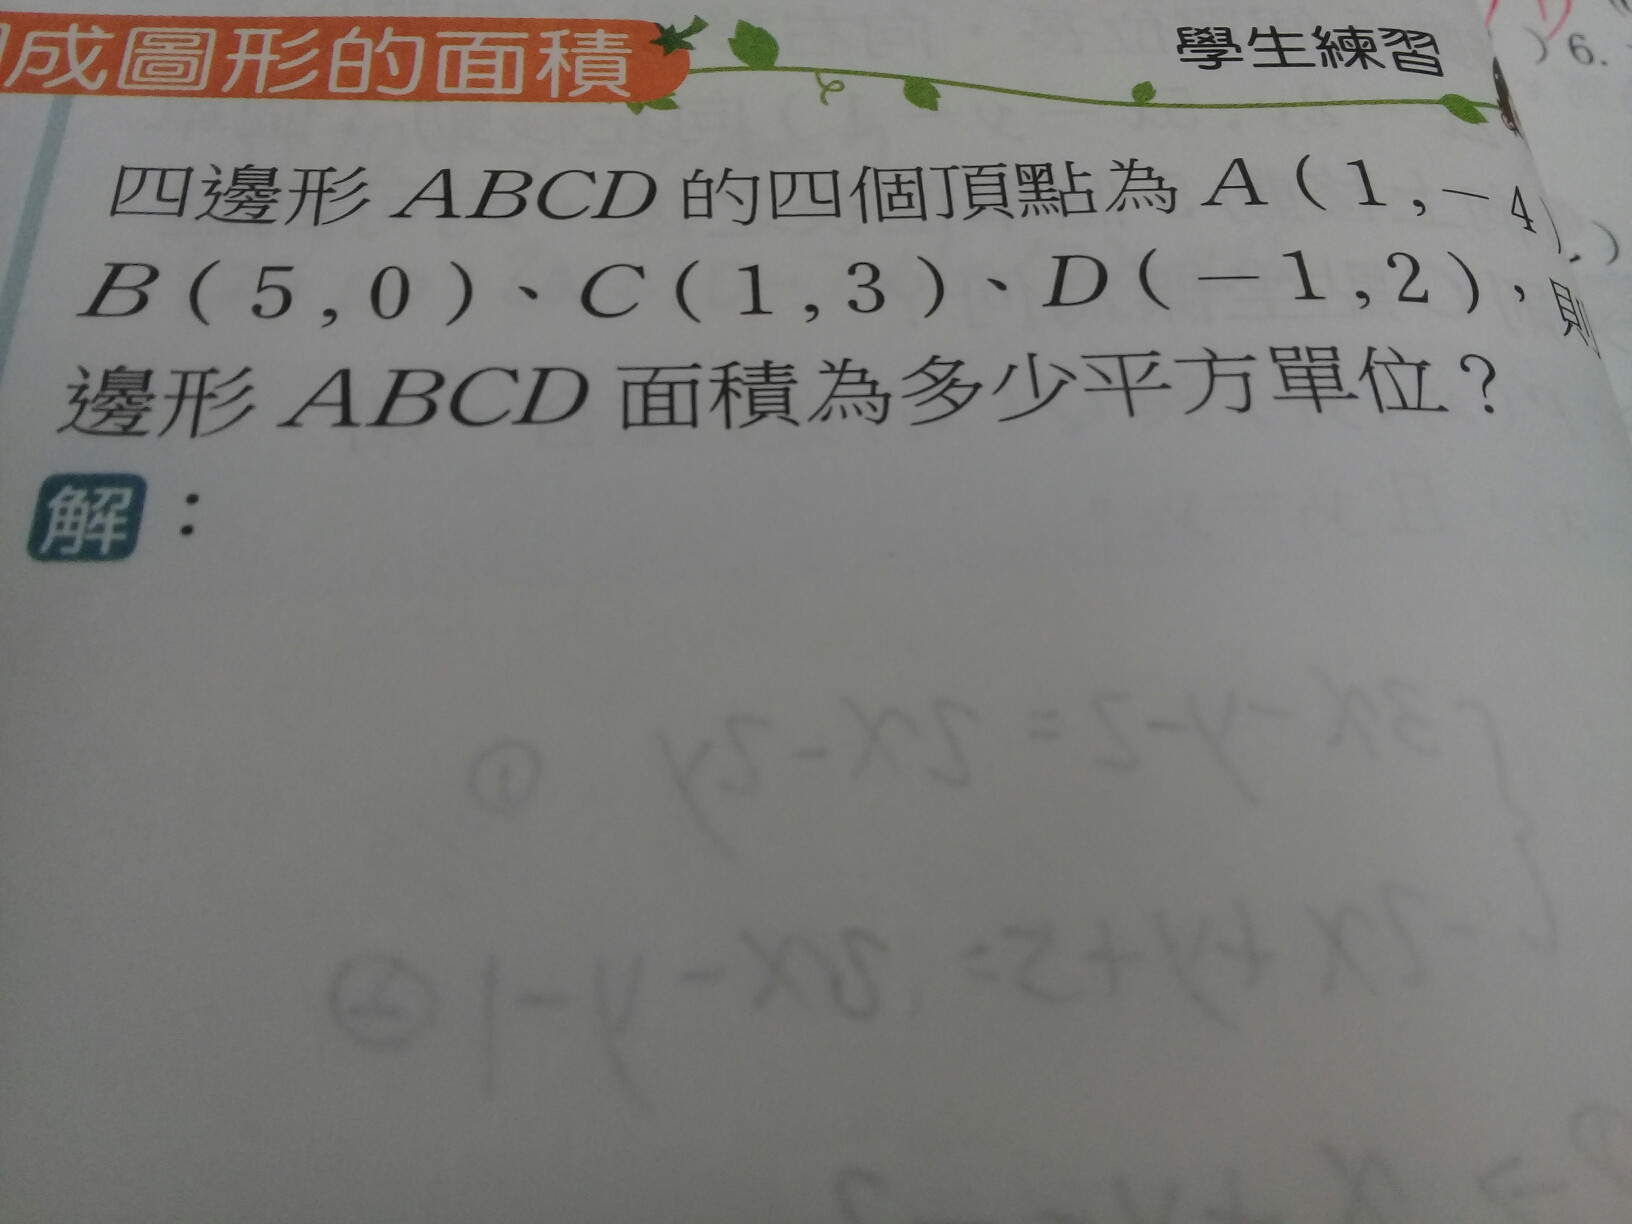 成圖形的面積
學生練習
) 6.
四邊形 ABCD 的四個頂點為 A ( 1 , -4 )、
B ( 5 , 0 )、C ( 1 , 3 )、D ( -1 , 2 ),則
邊形 ABCD 面積為多少平方單位?
解:
3x-y-2=2x-2y ①
-2x+y+5=2x-y-1 ②